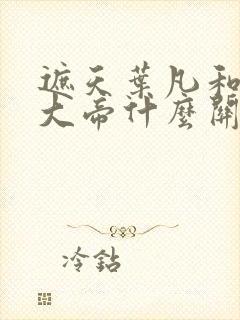 遮天葉凡和
大帝什麼關
冷鉆